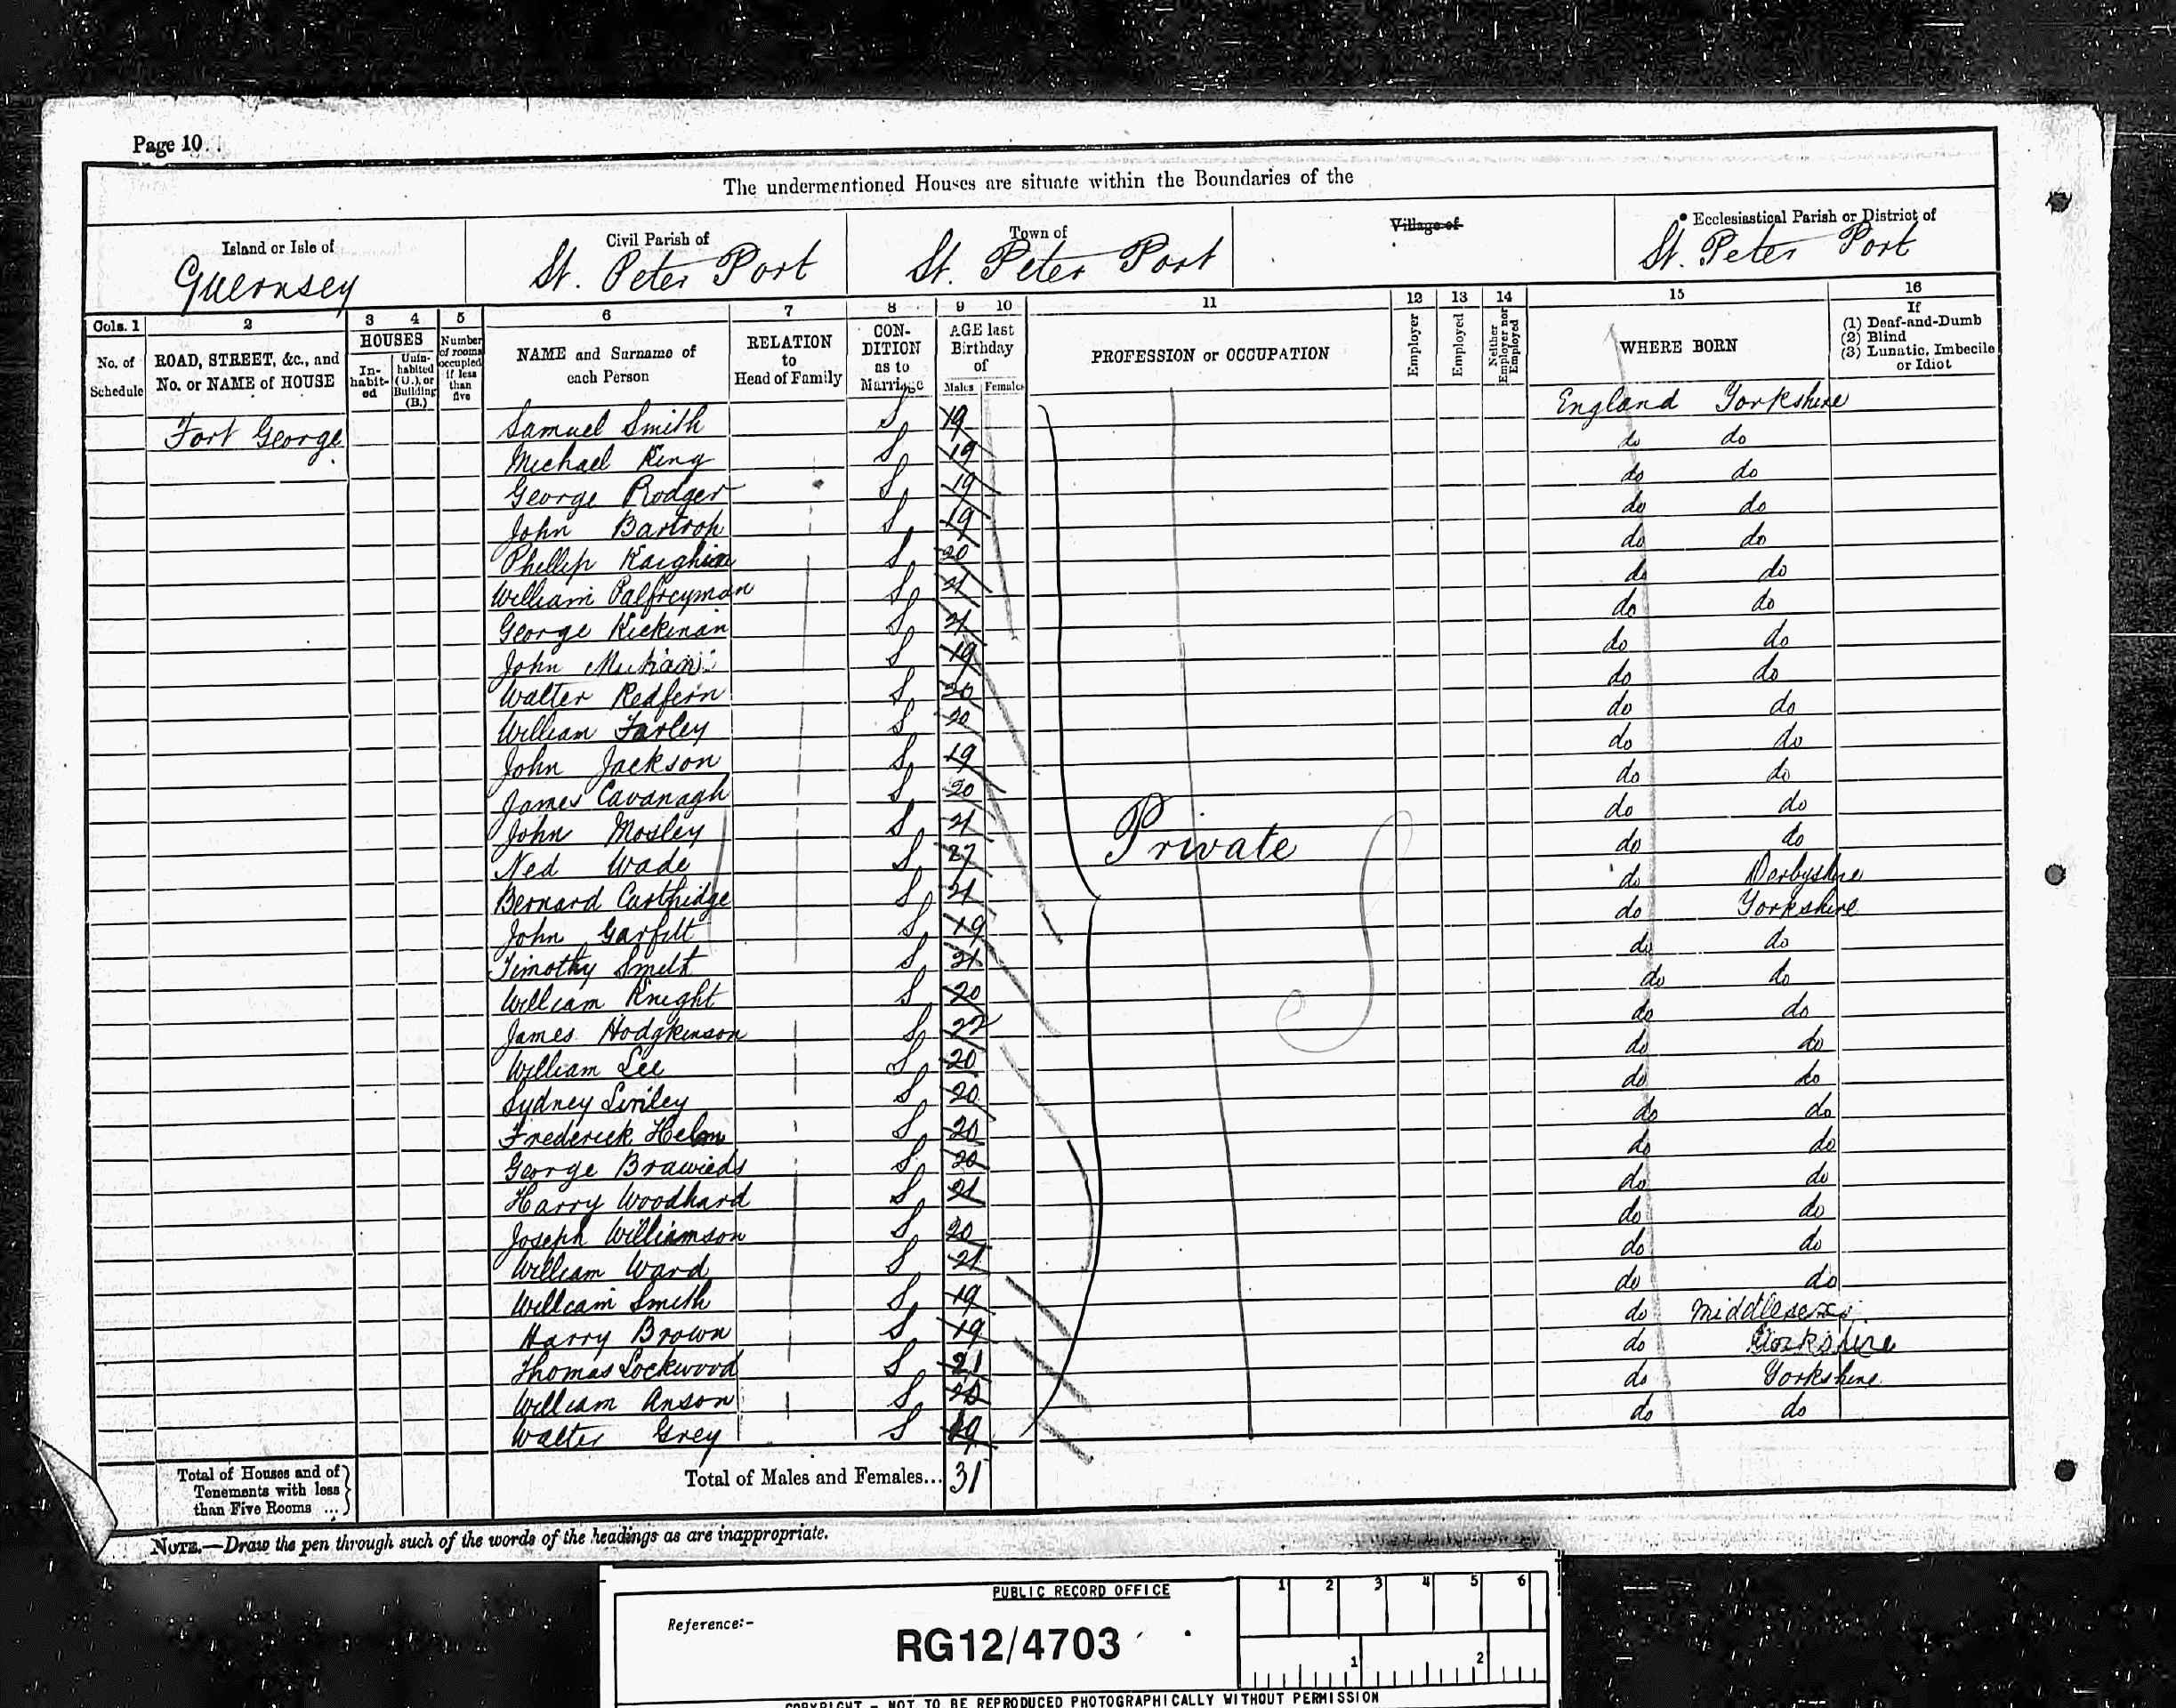 Page 10
The undermentioned Houses are situate within the Boundaries of the
Island or Isle of Guernsey
Civil Parish of St. Peter Port
Town of St. Peter Port
Village of
Ecclesiastical Parish or District of St. Peter Port
Cols. 1 2 3 4 5 6 7 8 9 10 11 12 13 14 15 16
No. of Schedule
ROAD, STREET, &c., and No. or NAME of HOUSE
HOUSES
In-habit-ed
Unin-habited (U.), or Building (B.)
Number of rooms occupied if less than five
NAME and Surname of each Person
RELATION to Head of Family
CON-DITION as to Marriage
AGE last Birthday of
Males Females
PROFESSION or OCCUPATION
Employer
Employed
Neither Employer nor Employed
WHERE BORN
If (1) Deaf-and-Dumb (2) Blind (3) Lunatic, Imbecile or Idiot
Fort George
Samuel Smith S 19 England Yorkshire
Michael King S 19 do do
George Rodger S 19 do do
John Bartrop S 19 do do
Phillip S 20 do do
William Palfreyman S 21 do do
George S 21 do do
John S 19 do do
Walter Redfern S 20 do do
William Farley S 20 do do
John Jackson S 19 do do
James Cavanagh S 20 do do
John Mosley S 21 do do
Ned Wade S 27 do do
Bernard Carthridge S 21 do Derbyshire
John Garfitt S 19 do Yorkshire
Timothy Smelt S 21 do do
William Knight S 20 do do
James Hodgkinson S 22 do do
William Lee S 20 do do
Sydney S 20 do do
Frederick Helm S 20 do do
George S 20 do do
Harry Woodhard S 21 do do
Joseph Williamson S 20 do do
William Ward S 21 do do
William Smith S 19 do do
Harry Brown S 19 do Middlesex
Thomas Lockwood S 21 do Yorkshire
William Anson S do Yorkshire
Walter Grey S 19 do do
Private
Total of Houses and of Tenements with less than Five Rooms ...
Total of Males and Females... 31
NOTE.—Draw the pen through such of the words of the headings as are inappropriate.
PUBLIC RECORD OFFICE
1 2 3 4 5 6
Reference:-
RG12/4703
1 2
COPYRIGHT - NOT TO BE REPRODUCED PHOTOGRAPHICALLY WITHOUT PERMISSION